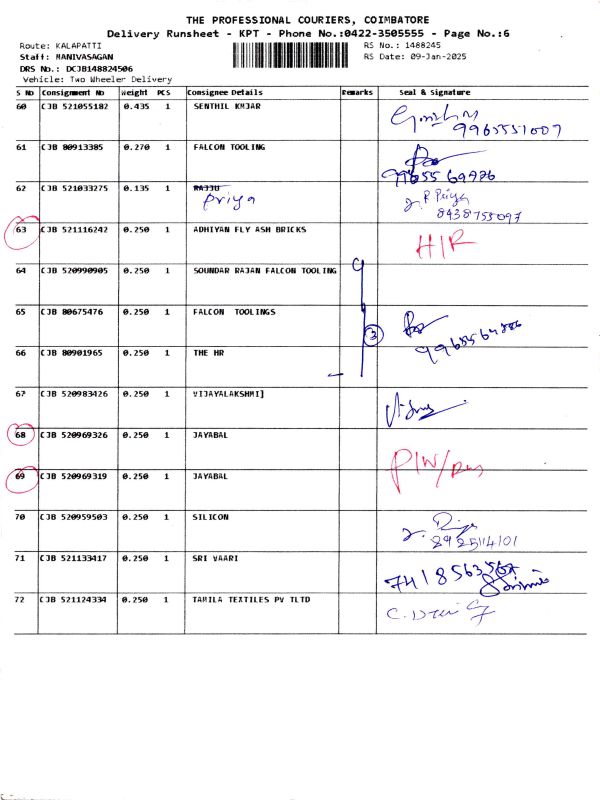 THE PROFESSIONAL COURIERS, COIMBATORE
Delivery Runsheet - KPT - Phone No.:0422-3505555 - Page No.:6
Route: KALAPATTI
RS No.: 1488245
Staff: MANIVASAGAN
RS Date: 09-Jan-2025
DRS No.: DCJB148824506
Vehicle: Two Wheeler Delivery
S No Consignment No Weight PCS Consignee Details Remarks Seal & signature
60 CJB 521055182 0.435 1 SENTHIL KMJAR
9965551007
61 CJB 80913385 0.270 1 FALCON TOOLING
62 CJB 521033275 0.135 1 RAJJU
Priya
R Priya
8438755097
63 CJB 521116242 0.250 1 ADHIYAN FLY ASH BRICKS
H/R
64 CJB 520990905 0.250 1 SOUNDAR RAJAN FALCON TOOLING
65 CJB 80675476 0.250 1 FALCON TOOLINGS
3
66 CJB 80901965 0.250 1 THE HR
67 CJB 520983426 0.250 1 VIJAYALAKSHMI]
68 CJB 520969326 0.250 1 JAYABAL
69 CJB 520969319 0.250 1 JAYABAL
70 CJB 520959503 0.250 1 SILICON
8925114101
71 CJB 521133417 0.250 1 SRI VAARI
72 CJB 521124334 0.250 1 TAMILA TEXTILES PV TLTD